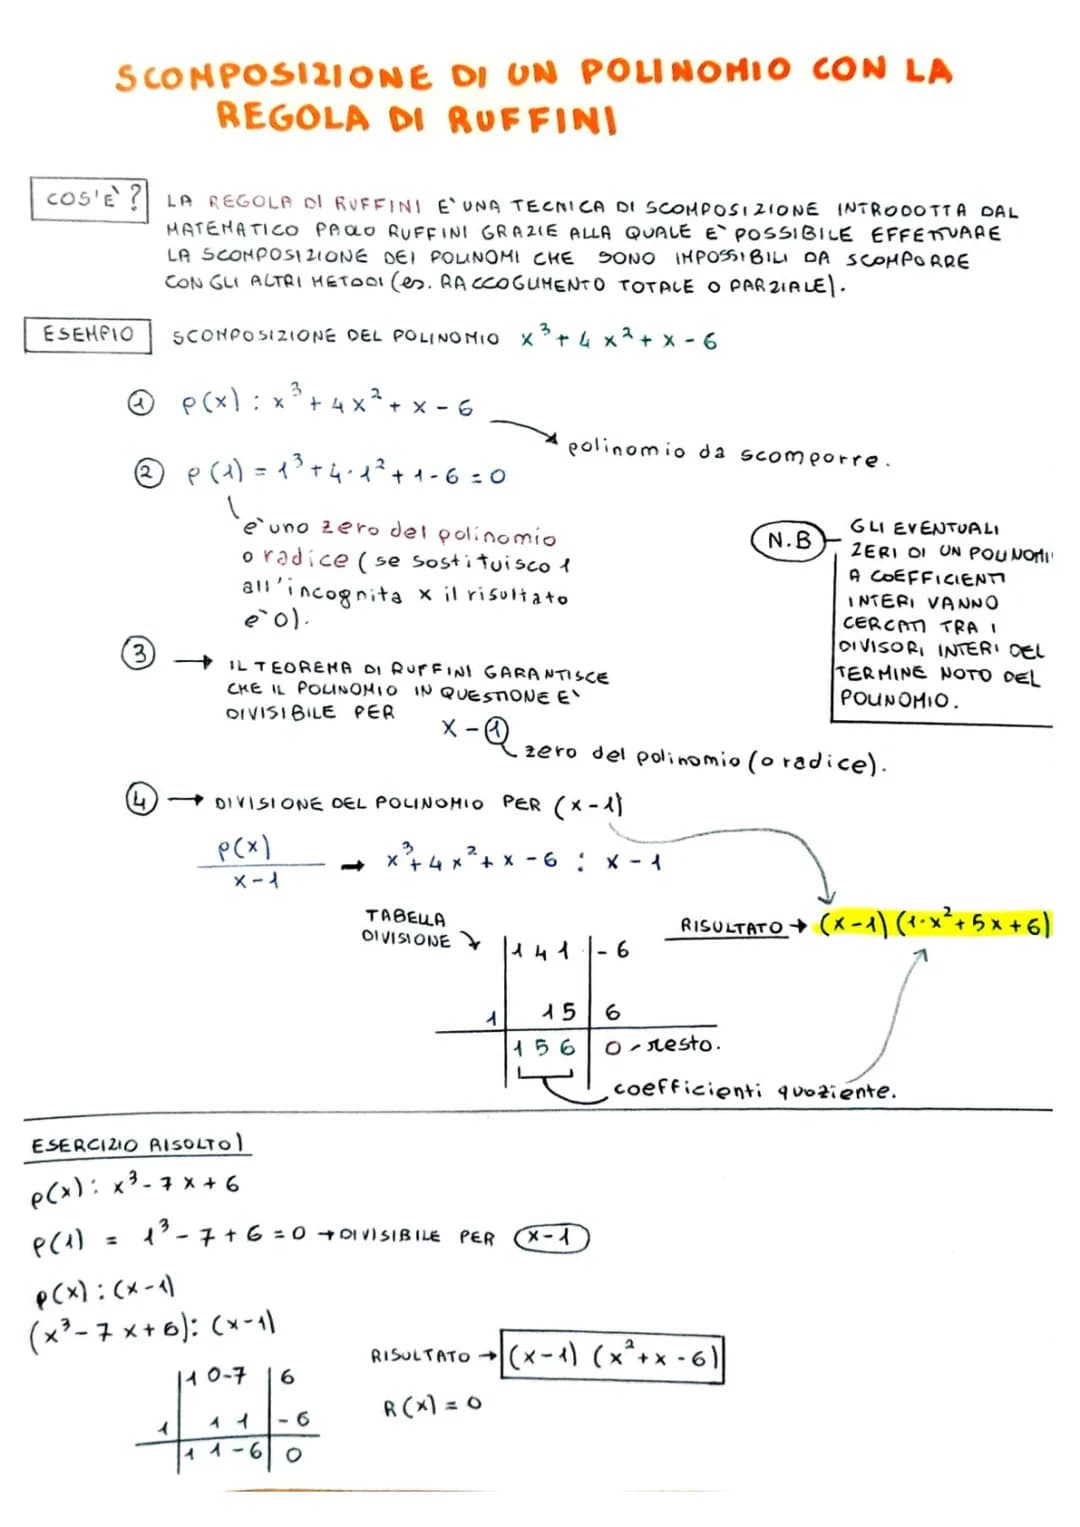 SCOMPOSIZIONE DI UN POLINOMIO CON LA
REGOLA DI RUFFINI
COS'È?
LA REGOLA DI RUFFINI E' UNA TECNICA DI SCOMPOSIZIONE INTRODOTTA DAL
MATEMATICO PAOLO RUFFINI GRAZIE ALLA QUALE E' POSSIBILE EFFETTUARE
LA SCOMPOSIZIONE DEI POLINOMI CHE SONO IMPOSSIBILI DA SCOMPORRE
CON GLI ALTRI METODI (es. RACCOGLIMENTO TOTALE O PARZIALE).
ESEMPIO
SCOMPOSIZIONE DEL POLINOMIO x³ + 4x² + x - 6
① p(x): x³ + 4x² + x - 6
polinomio da scomporre.
② p(1) = 1³ + 4·1² + 1 - 6 = 0
e' uno zero del polinomio
o radice (se sostituisco 1
all'incognita x il risultato
e' 0).
N.B
GLI EVENTUALI
ZERI DI UN POLINOMI
A COEFFICIENTI
INTERI VANNO
CERCATI TRA I
DIVISORI INTERI DEL
TERMINE NOTO DEL
POLINOMIO.
③ → IL TEOREMA DI RUFFINI GARANTISCE
CHE IL POLINOMIO IN QUESTIONE E'
DIVISIBILE PER
x - 1
zero del polinomio (o radice).
④ → DIVISIONE DEL POLINOMIO PER (x-1)
p(x)
x-1
→ x³ + 4x² + x - 6 : x - 1
TABELLA
DIVISIONE
RISULTATO → (x-1) (1·x² + 5x + 6)
1 4 1 | -6
1 | 1 5 | 6
1 5 6 | 0 - resto.
coefficienti quoziente.
ESERCIZIO RISOLTO)
p(x): x³ - 7x + 6
p(1) = 1³ - 7 + 6 = 0 → DIVISIBILE PER x-1
p(x) : (x-1)
(x³ - 7x + 6) : (x-1)
RISULTATO → (x-1) (x² + x - 6)
R(x) = 0
1 0 -7 | 6
1 | 1 1 | -6
1 1 -6 | 0